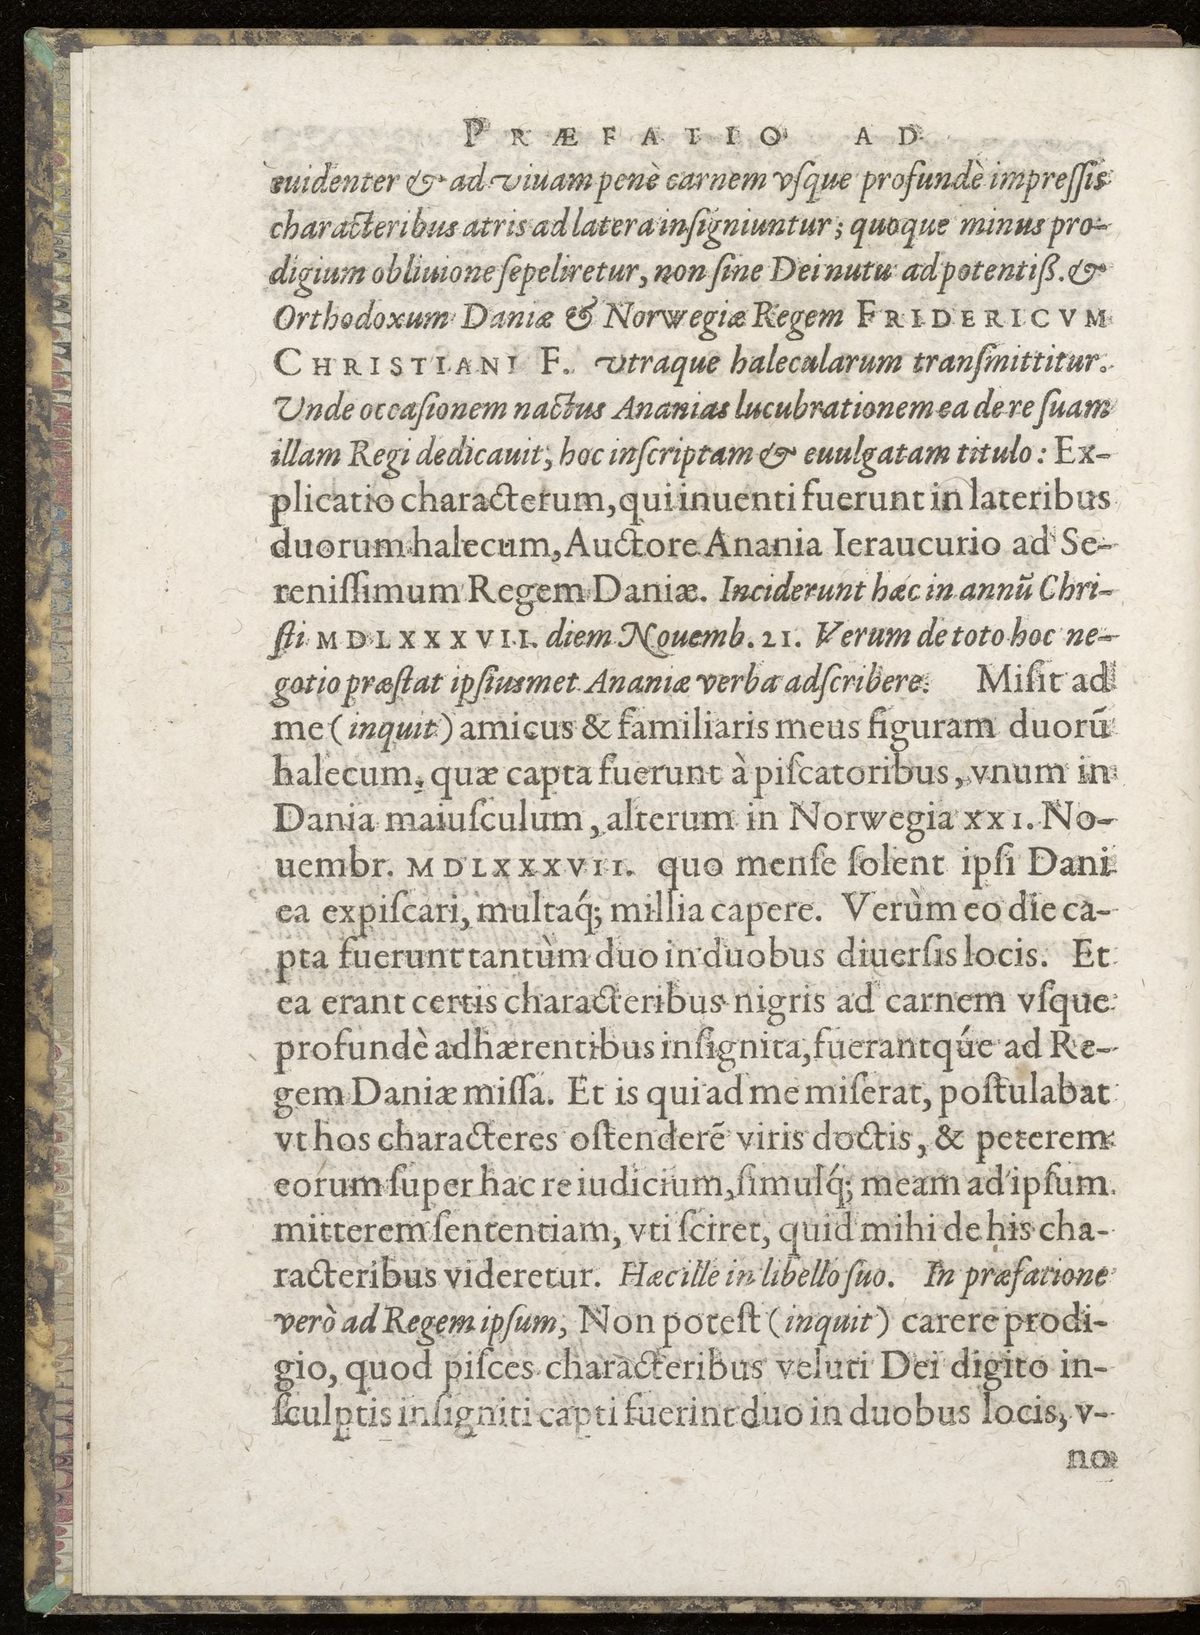 PRÆFATIO AD
euidenter & ad viuam penè carnem vſque profundè impreſſis
characteribus atris ad latera inſigniuntur; quoque minus pro-
digium obliuione ſepeliretur, non ſine Dei nutu ad potentiß. &
Orthodoxum Daniæ & Norwegiæ Regem FRIDERICVM
CHRISTIANI F. vtraque halecularum tranſmittitur.
Unde occaſionem nactus Ananias lucubrationem ea de re ſuam
illam Regi dedicauit, hoc inſcriptam & euulgatam titulo: Ex-
plicatio characterum, qui inuenti fuerunt in lateribus
duorum halecum, Auctore Anania Ieraucurio ad Se-
reniſſimum Regem Daniæ. Inciderunt hæc in annū Chri-
ſti MDLXXXVII. diem Nouemb. 21. Verum de toto hoc ne-
gotio præſtat ipſiusmet Ananiæ verba adſcribere. Miſit ad
me (inquit) amicus & familiaris meus figuram duorū
halecum, quæ capta fuerunt à piſcatoribus, vnum in
Dania maiuſculum, alterum in Norwegia XXI. No-
uembr. MDLXXXVII. quo menſe ſolent ipſi Dani
ea expiſcari, multaq́; millia capere. Verùm eo die ca-
pta fuerunt tantùm duo in duobus diuerſis locis. Et
ea erant certis characteribus nigris ad carnem vſque
profundè adhærentibus inſignita, fuerantqúe ad Re-
gem Daniæ miſſa. Et is qui ad me miſerat, poſtulabat
vt hos characteres oſtenderē viris doctis, & peterem
eorum ſuper hac re iudicium, ſimulq́; meam ad ipſum
mitterem ſententiam, vti ſciret, quid mihi de his cha-
racteribus videretur. Hæc ille in libello ſuo. In præfatione
verò ad Regem ipſum, Non poteſt (inquit) carere prodi-
gio, quod piſces characteribus veluti Dei digito in-
ſculptis inſigniti capti fuerint duo in duobus locis, v-
no